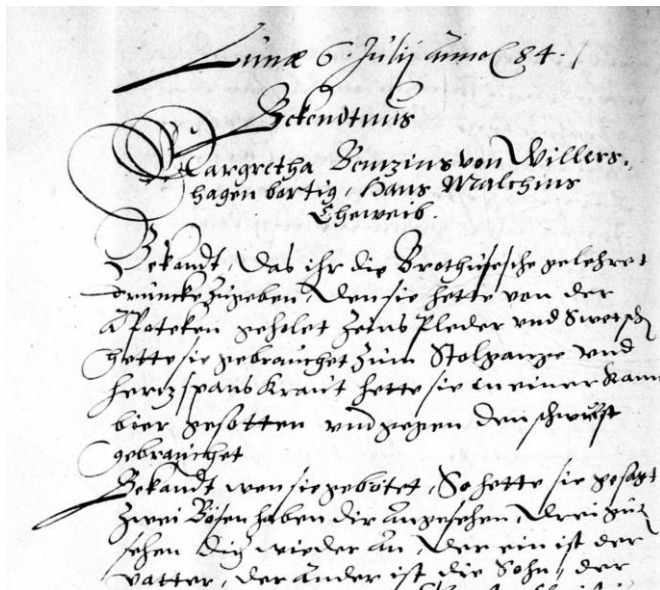 Lunæ 6 Julij anno 84.
Bekendtnus
Margretha Bentzins von Willers,
hagen bortig, Hans Malchins
Eheweib.
Bekandt, Das ihr die Brothusesche gelehret
Druncke zugeben, den sie hette von der
Apoteken geholet vnd
hette sie gebrauchet zum vnd
hertzspans Kraut hette sie in einer Kann
bier gesotten vnd gegen den
gebrauchet
Bekandt wen sie gebötet, So hette sie gesagt
Zwei Bösen haben dir angesehen, drei gute
sehen dig wieder an, der ein ist der
vatter, der ander ist die Sohn, der